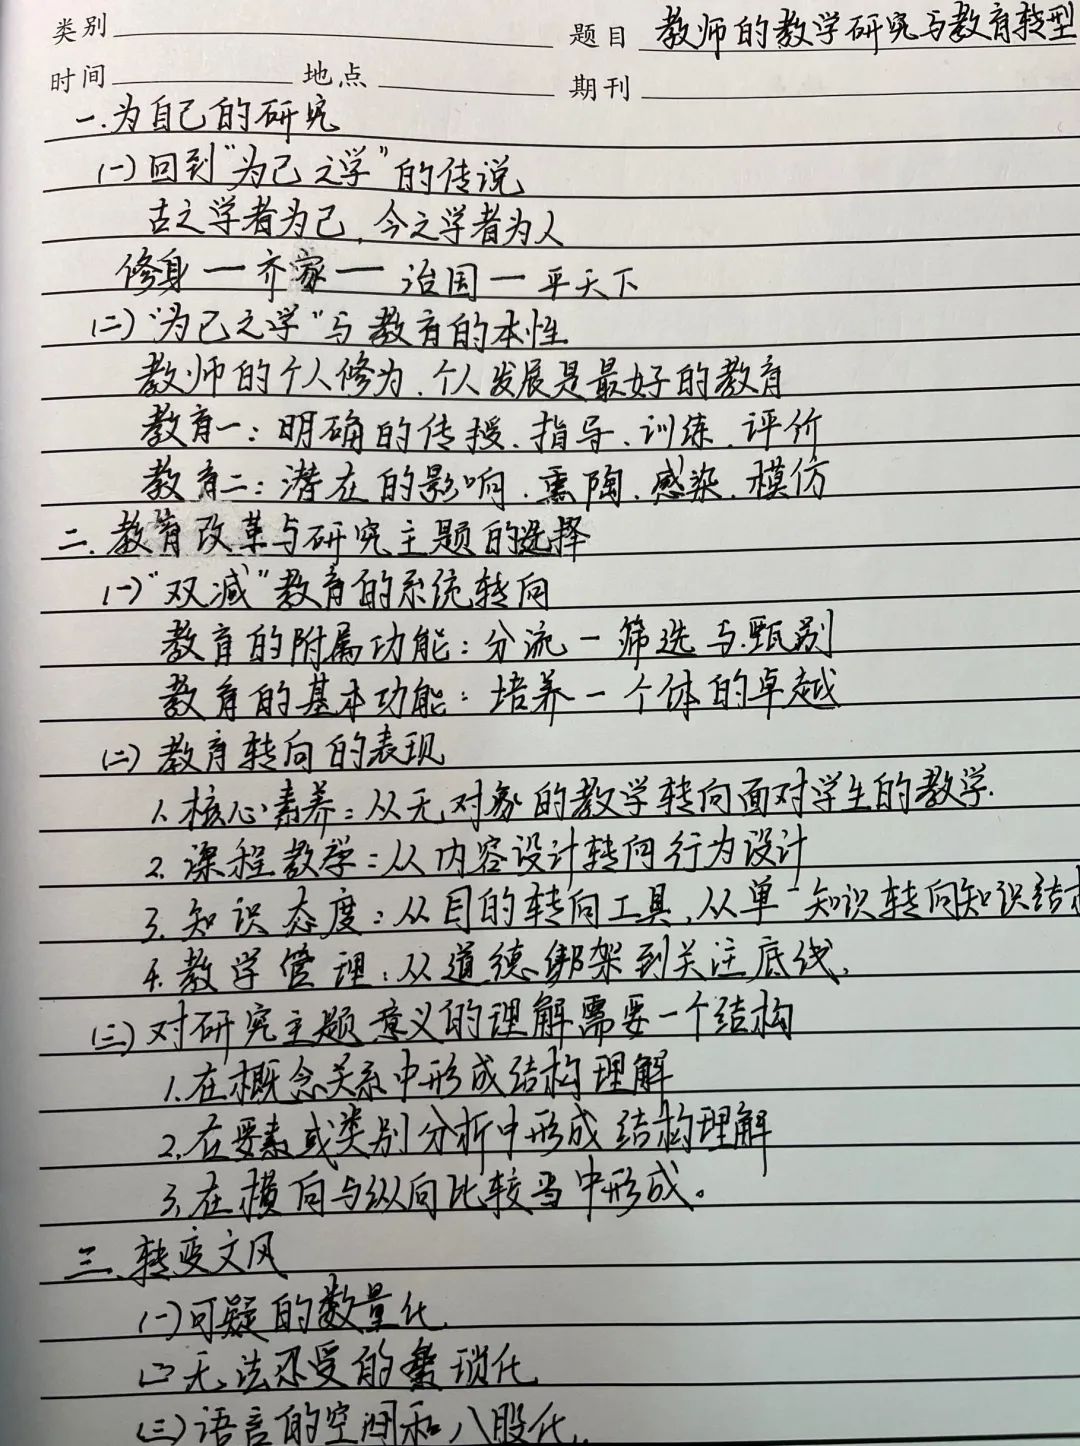 类别 题目 教师的教学研究与教育转型
时间 地点 期刊
一.为自己的研究
(一)回到"为己之学"的传说
古之学者为己,今之学者为人
修身一齐家一治国一平天下
(二)"为己之学"与教育的本性
教师的个人修为.个人发展是最好的教育
教育一:明确的传授.指导.训练.评价
教育二:潜在的影响.熏陶.感染.模仿
二.教育改革与研究主题的选择
(一)"双减"教育的系统转向
教育的附属功能:分流一筛选与甄别
教育的基本功能:培养一个体的卓越
(二)教育转向的表现
1.核心素养:从无对象的教学转向面对学生的教学.
2.课程教学:从内容设计转向行为设计
3.知识态度:从目的转向工具,从单一知识转向知识结
4.教学管理:从道德绑架到关注底线.
(三)对研究主题意义的理解需要一个结构
1.在概念关系中形成结构理解
2.在要素或类别分析中形成结构理解
3.在横向与纵向比较当中形成。
三.转变文风
(一)可疑的数量化
(二)无法忍受的琐化
(三)语言的空洞和八股化.